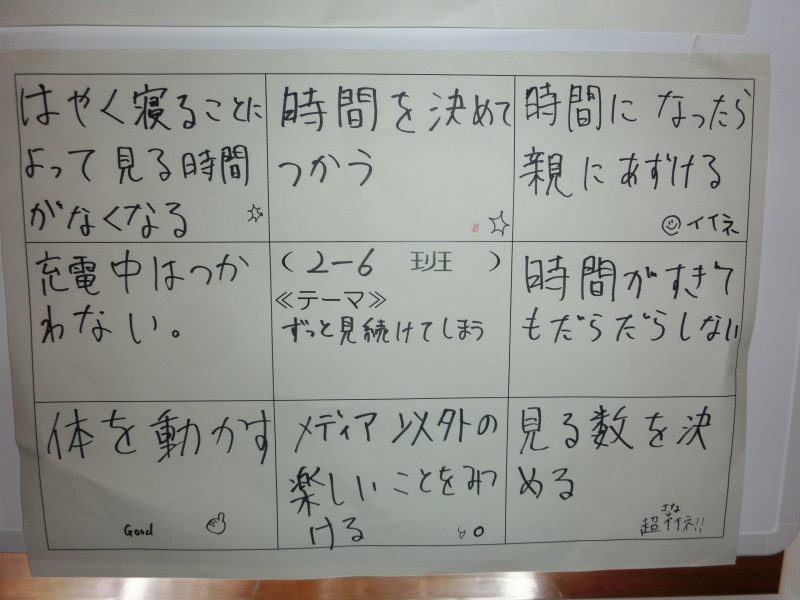 はやく寝ることに
よって見る時間
がなくなる
時間を決めて
つかう
時間になったら
親にあずける
イイネ
充電中はつか
わない。
(2-6 班)
≪テーマ≫
ずっと見続けてしまう
時間がすぎて
もだらだらしない
体を動かす
Good
メディア以外の
楽しいことをみつ
ける
見る数を決
める
超イイネ!!